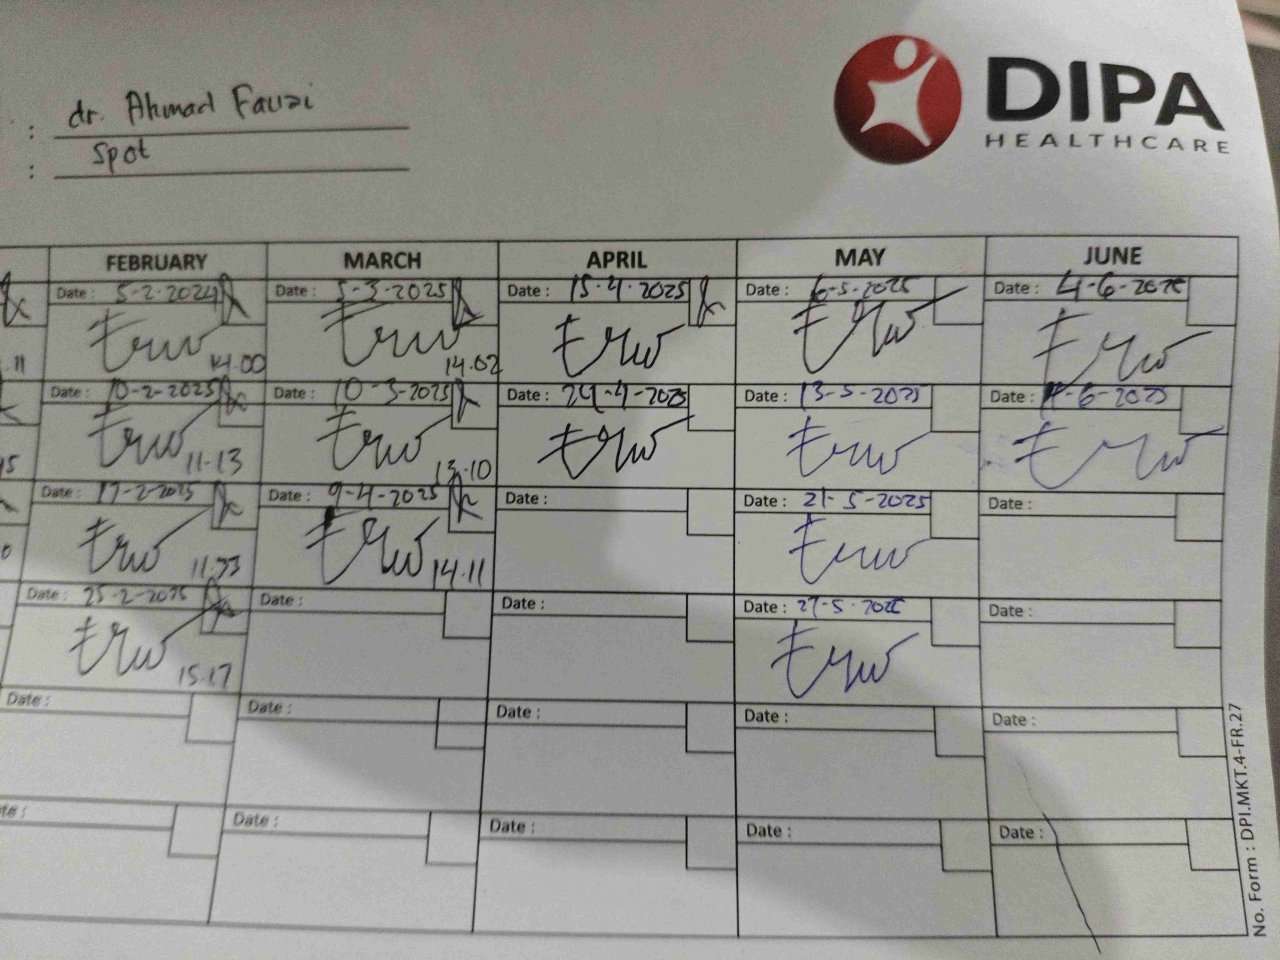 : dr. Ahmad Fauzi
: Spot
DIPA
HEALTHCARE
FEBRUARY MARCH APRIL MAY JUNE
Date : 5-2-2024 Date : 5-3-2025 Date : 15-4-2025 Date : 6-5-2025 Date : 4-6-2025
.11 14.00 14.02
Date : 10-2-2025 Date : 10-3-2025 Date : 24-4-2025 Date : 13-5-2025 Date : -6-2025
11.13 13.10
Date : 17-2-2025 Date : 9-4-2025 Date : Date : 21-5-2025 Date :
11.33 14.11
Date : 25-2-2025 Date : Date : Date : 27-5-2025 Date :
15.17
Date : Date : Date : Date : Date :
Date : Date : Date : Date : Date :
No. Form : DPI.MKT.4-FR.27